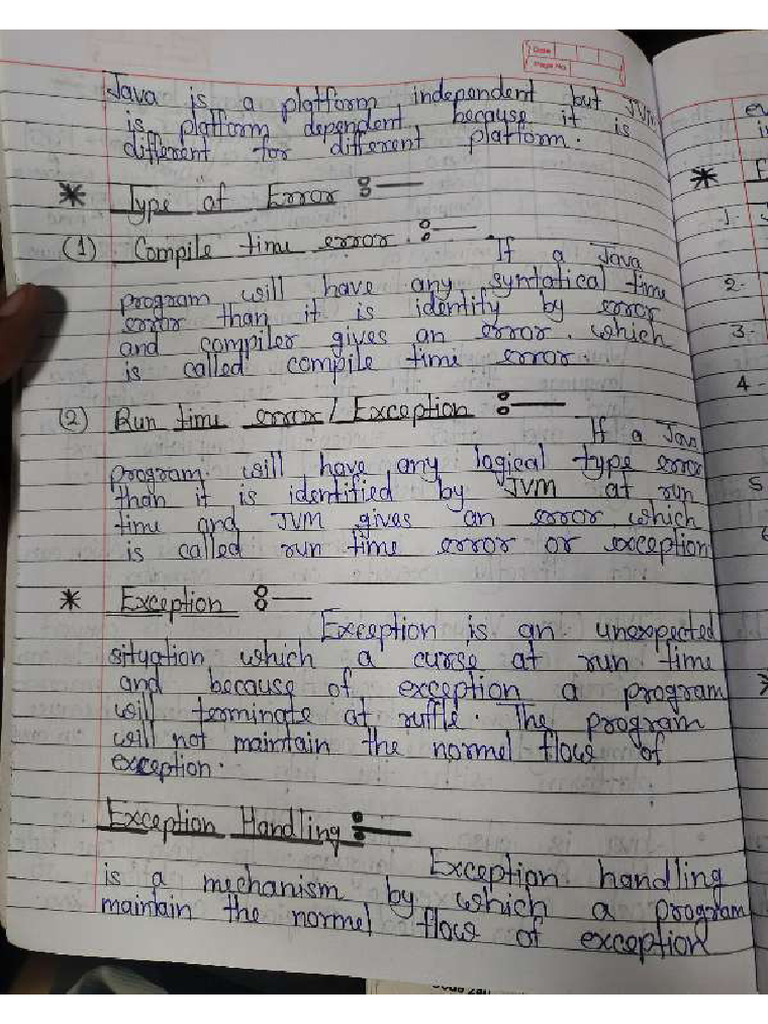 Date
Page No.
Java is a platform independent but JVM
is platform dependent because it is
different for different platform.
* Type of Error :-
(1) Compile time error :-
If a Java
program will have any syntatical time
error than it is identify by error
and compiler gives an error. which
is called compile time error.
(2) Run time error / Exception :-
If a Java
program will have any logical type error
than it is identified by JVM at run
time and JVM gives an error which
is called run time error or exception
* Exception :-
Exception is an unexpected
situation which a curse at run time
and because of exception a program
will terminate at ruffle. The program
will not maintain the normel flow of
exception.
Exception Handling :-
Exception handling
is a mechanism by which a program
maintain the normel flow of exception
*
1.
2.
3.
4.
5